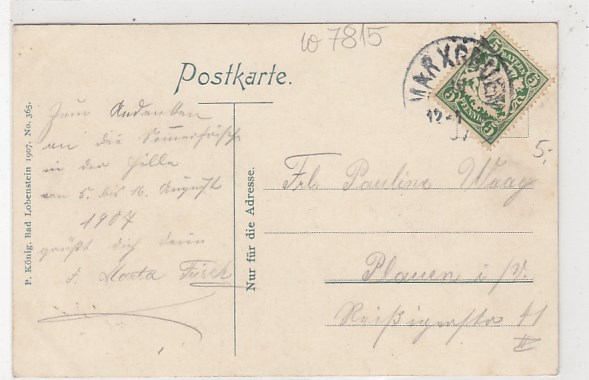 w 7815
Postkarte.
MARXGRÜN
5 BAYERN 5
5 PFENNIG 5
5.
Zum Andenken
an die Sommerfrische
in der Hölle
vom 5. bis 16. August
1907
grüßt dich deine
Marta
P. König, Bad Lobenstein 1907. No. 365.
Nur für die Adresse.
Frl. Pauline Waag
Plauen i/V.
Reißigerstr 41
II